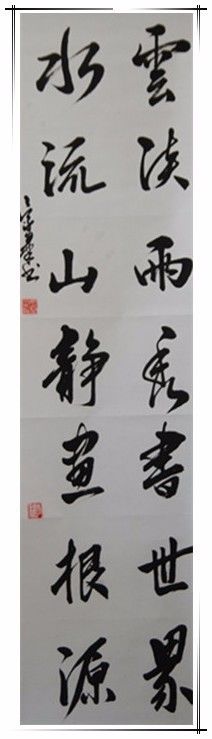 雲淡雨秀書世界
水流山静畫根源